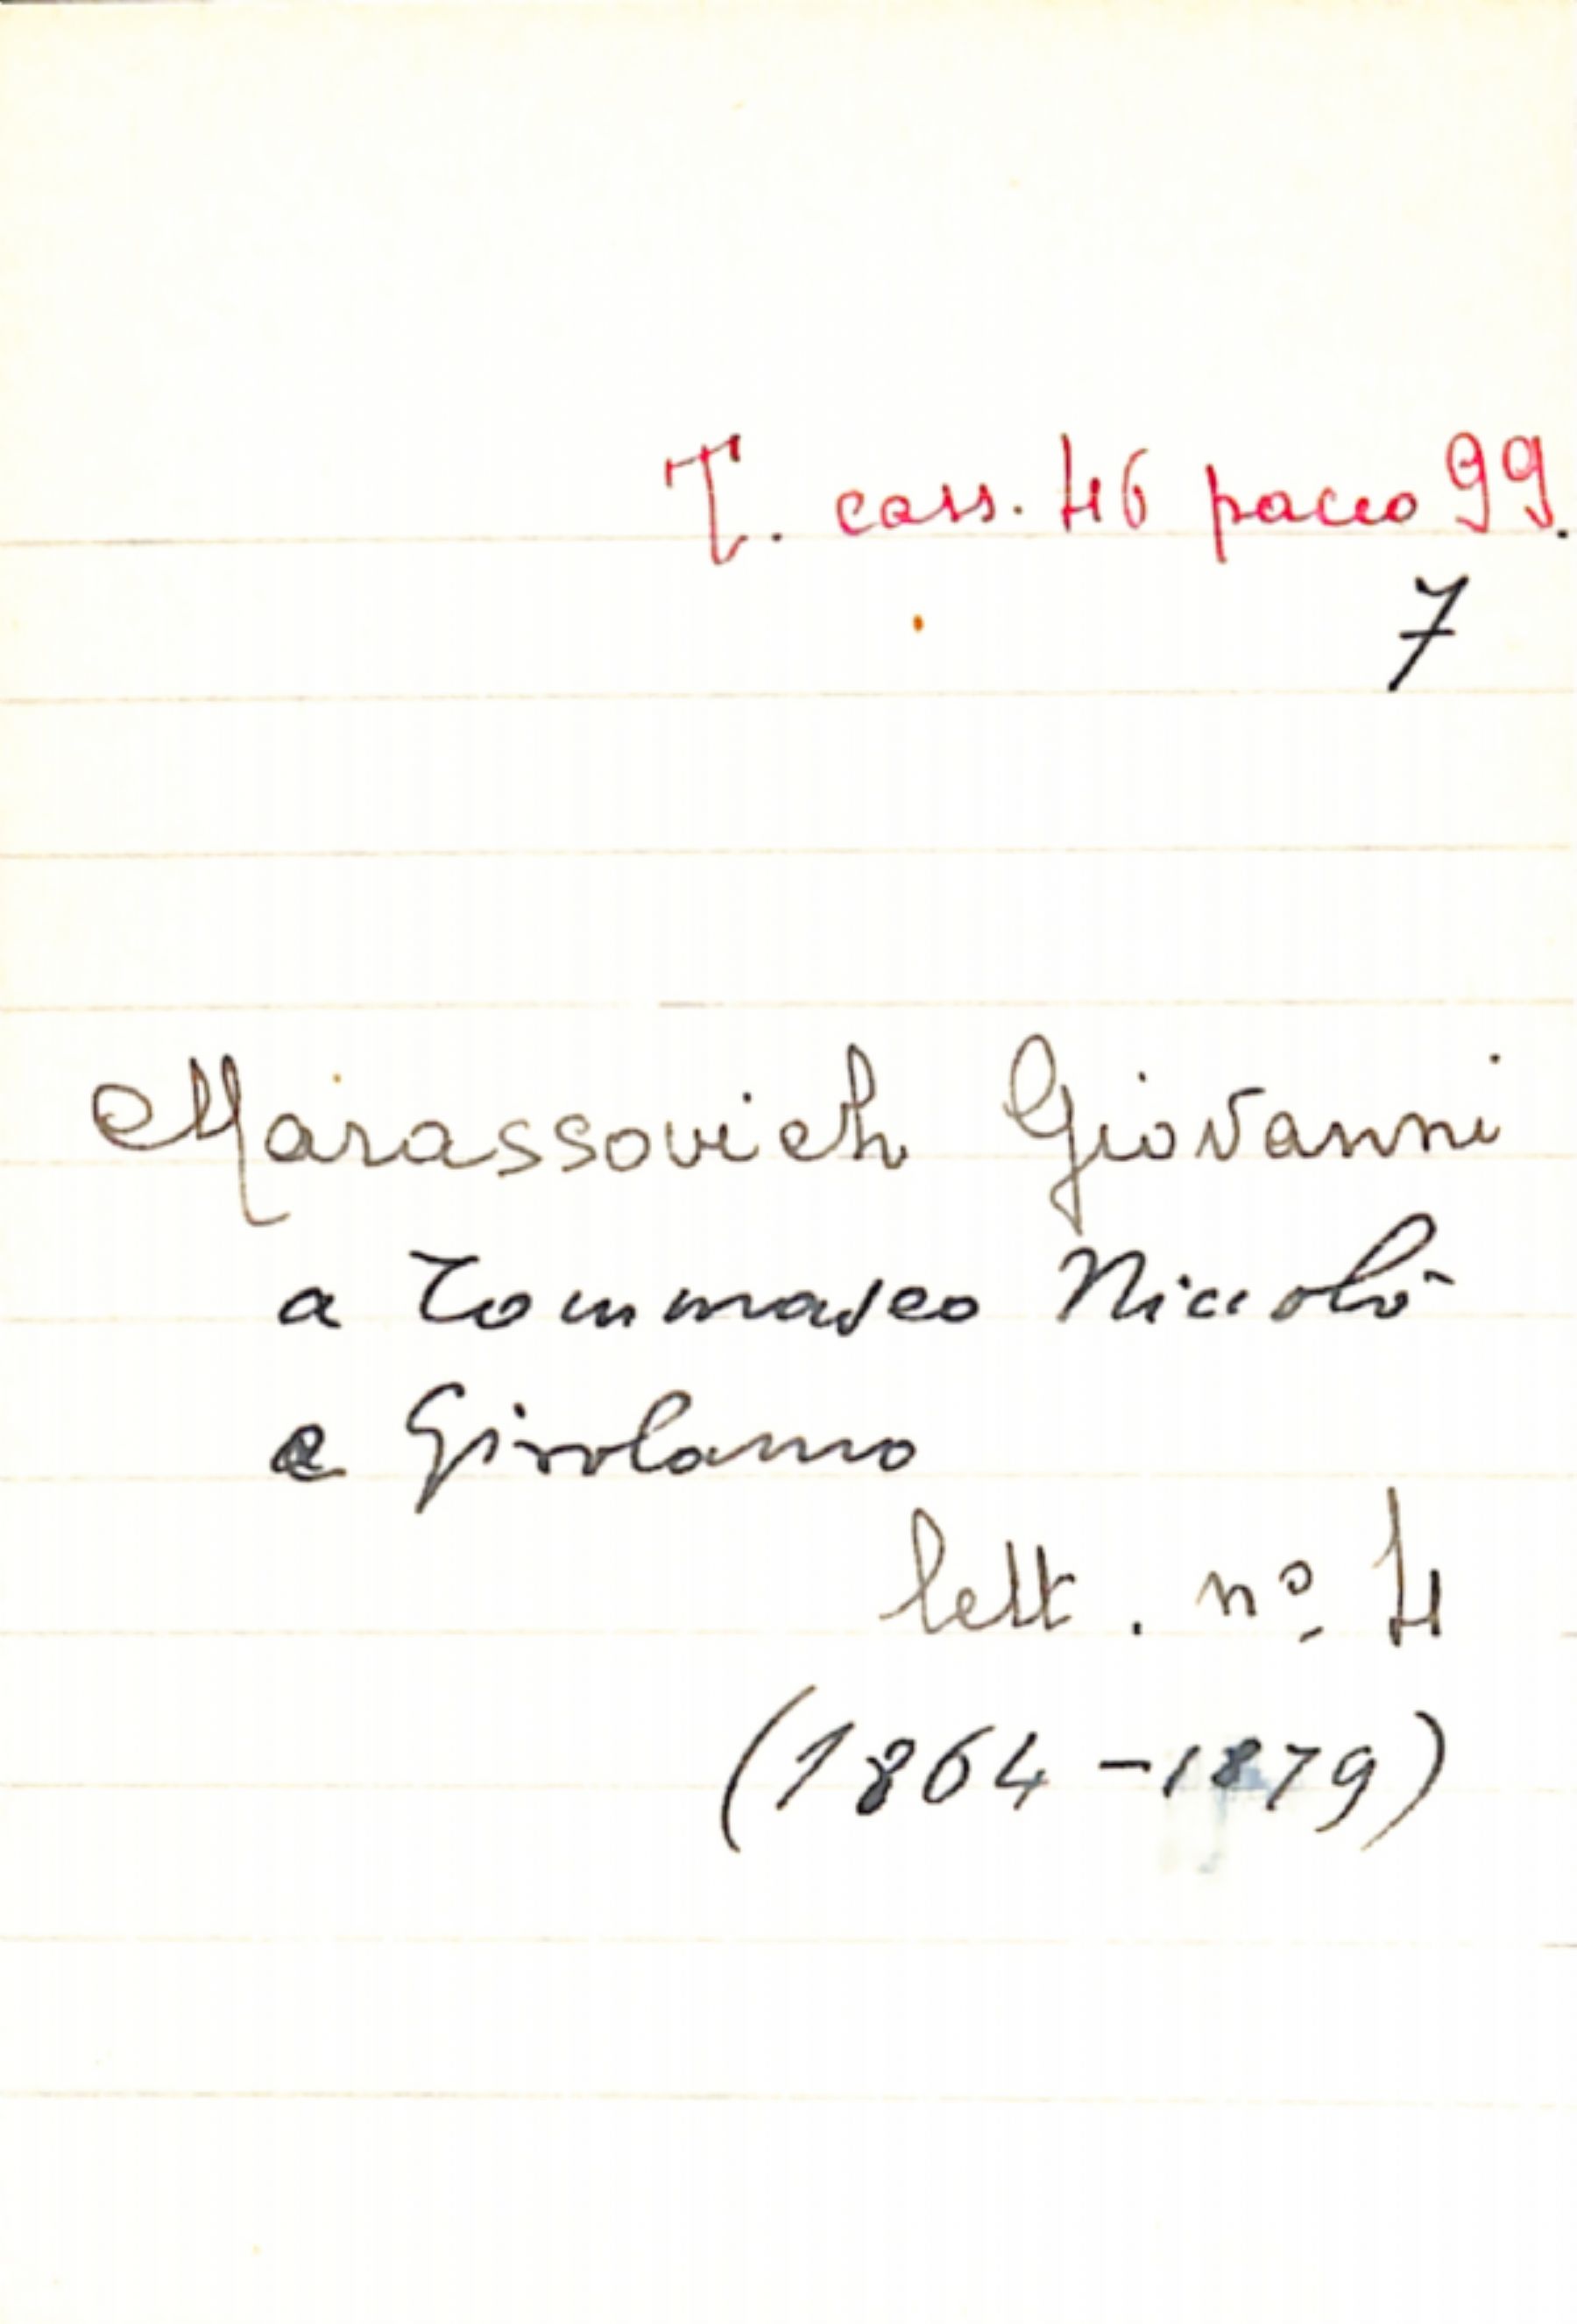 T. cass. 46 pacco 99.
7
Marassovich Giovanni
a Tommaseo Niccolò
e Girolamo
lett. nº 4
(1864-1879)